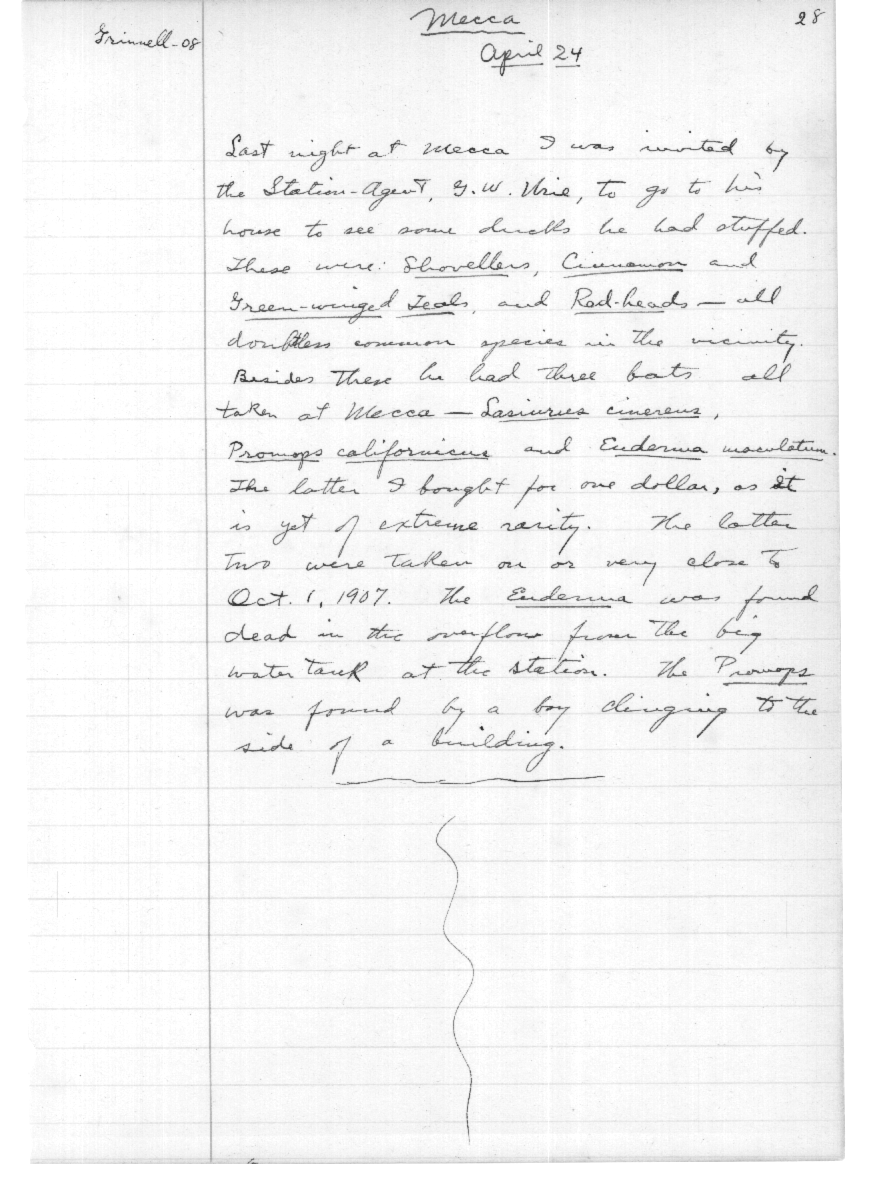 Grinnell-08
Mecca
28
April 24
Last night at Mecca I was invited by
the Station-Agent, G.W. Urie, to go to his
house to see some ducks he had stuffed.
These were: Shovellers, Cinnamon and
Green-winged Teals, and Red-heads — all
doubtless common species in the vicinity.
Besides these he had three bats all
taken at Mecca — Lasiurus cinereus,
Promops californicus and Euderma maculatum.
The latter I bought for one dollar, as it
is yet of extreme rarity. The latter
two were taken on or very close to
Oct. 1, 1907. The Euderma was found
dead in the overflow from the big
water tank at the station. The Promops
was found by a boy clinging to the
side of a building.